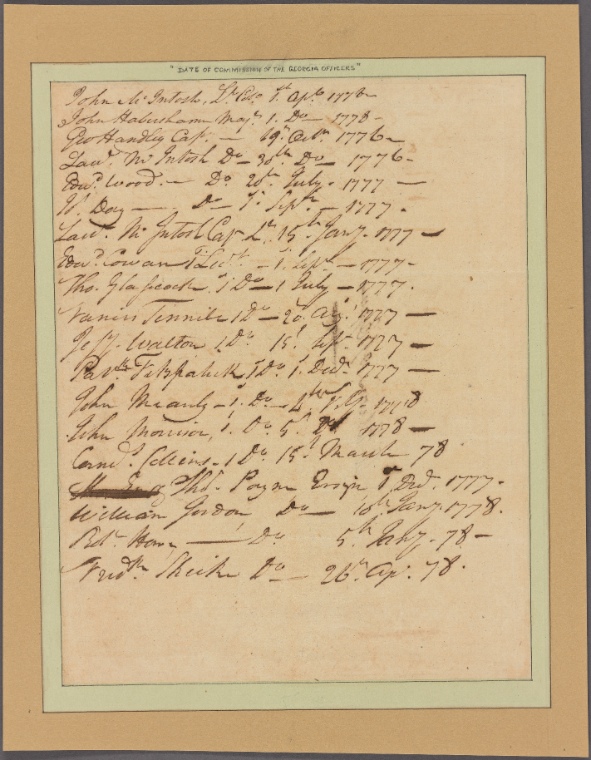 "DATE OF COMMISSION OF THE GEORGIA OFFICERS"
John McIntosh, Lt. Colo. 1st Apl. 1778—
John Habersham Majr. 1. Do— 1778—
Geo Handley Capt. — 19th Octr. 1776—
Lawd. McIntosh Do— 30th Do— 1776—
Edwd. Wood.— Do. 20th July. 1777 —
W. Day— Do 1st Septr.— 1777.
Lawd. McIntosh Cap Lt. 15th Jany. 1777 —
Edwd. Cowan 1st Lieut. — 1. Sept.— 1777.
Tho. Glascock. 1 Do— 1 July — 1777.
Francis Tennill 1 Do— 20 Augt. 1777 —
Walton 2 Do. 15th Sept. 1777 —
Patrk. Fitzpatrick 1 Do. 1. Decr. 1777 —
John 1. Do— 4th 1778
John Morrison, 1. Do. 5th 1778—
Corns. Collins. 1 Do 15th March 78
Thos. Payne Ensign 1 Decr. 1777.
William Jordon Do— 10th Jany. 1778.
Robt. How— Do 5th 78—
Fredk. Shick Do— 26th Apr. 78.